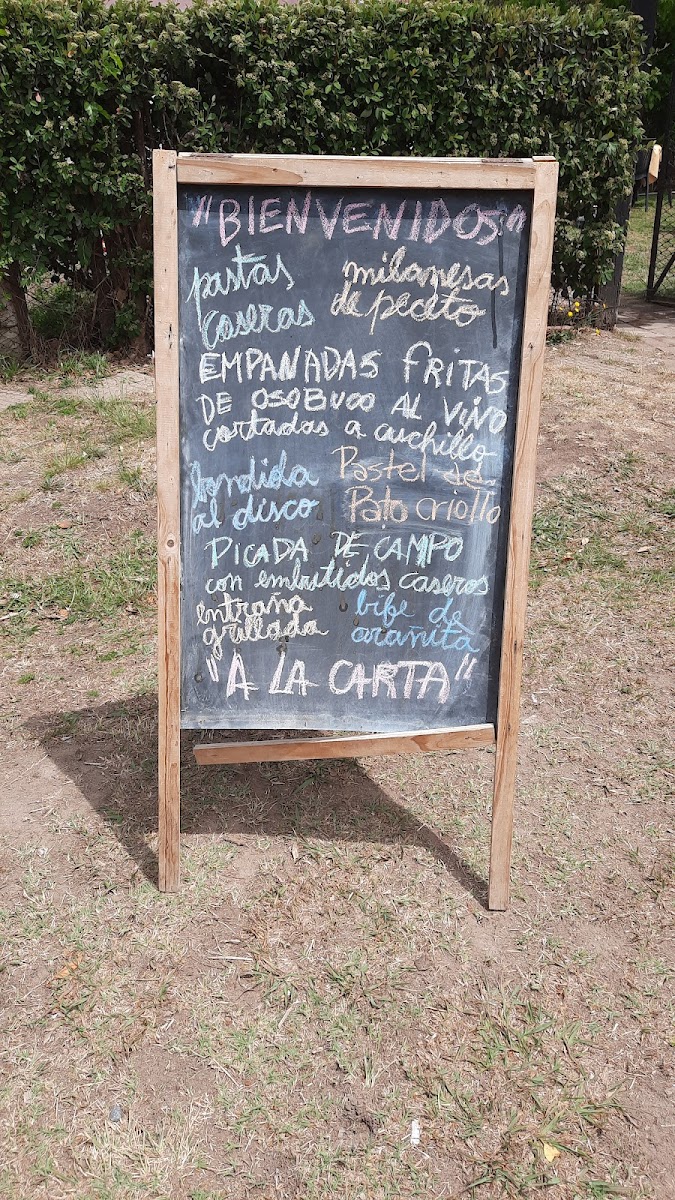 "BIENVENIDOS"
pastas
caseras
milanesas
de peceto
EMPANADAS FRITAS
DE OSOBUCO AL VINO
cortadas a cuchillo
bondida
al disco
Pastel de
Pato criollo
PICADA DE CAMPO
con embutidos caseros
entraña
grillada
bife de
arañita
"A LA CARTA"